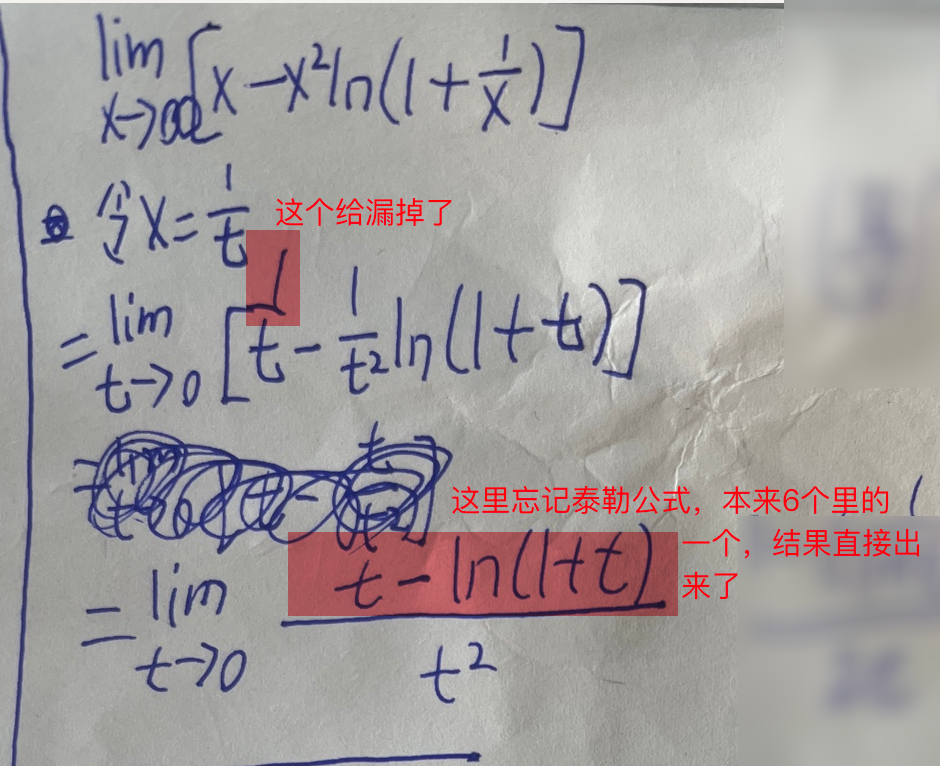 lim x→∞ [x-x²ln(1+1/x)]
令x=1/t 这个给漏掉了
=lim t→0 [1/t-1/t²ln(1+t)]
这里忘记泰勒公式，本来6个里的
一个，结果直接出
来了
=lim t→0 (t-ln(1+t))/t²